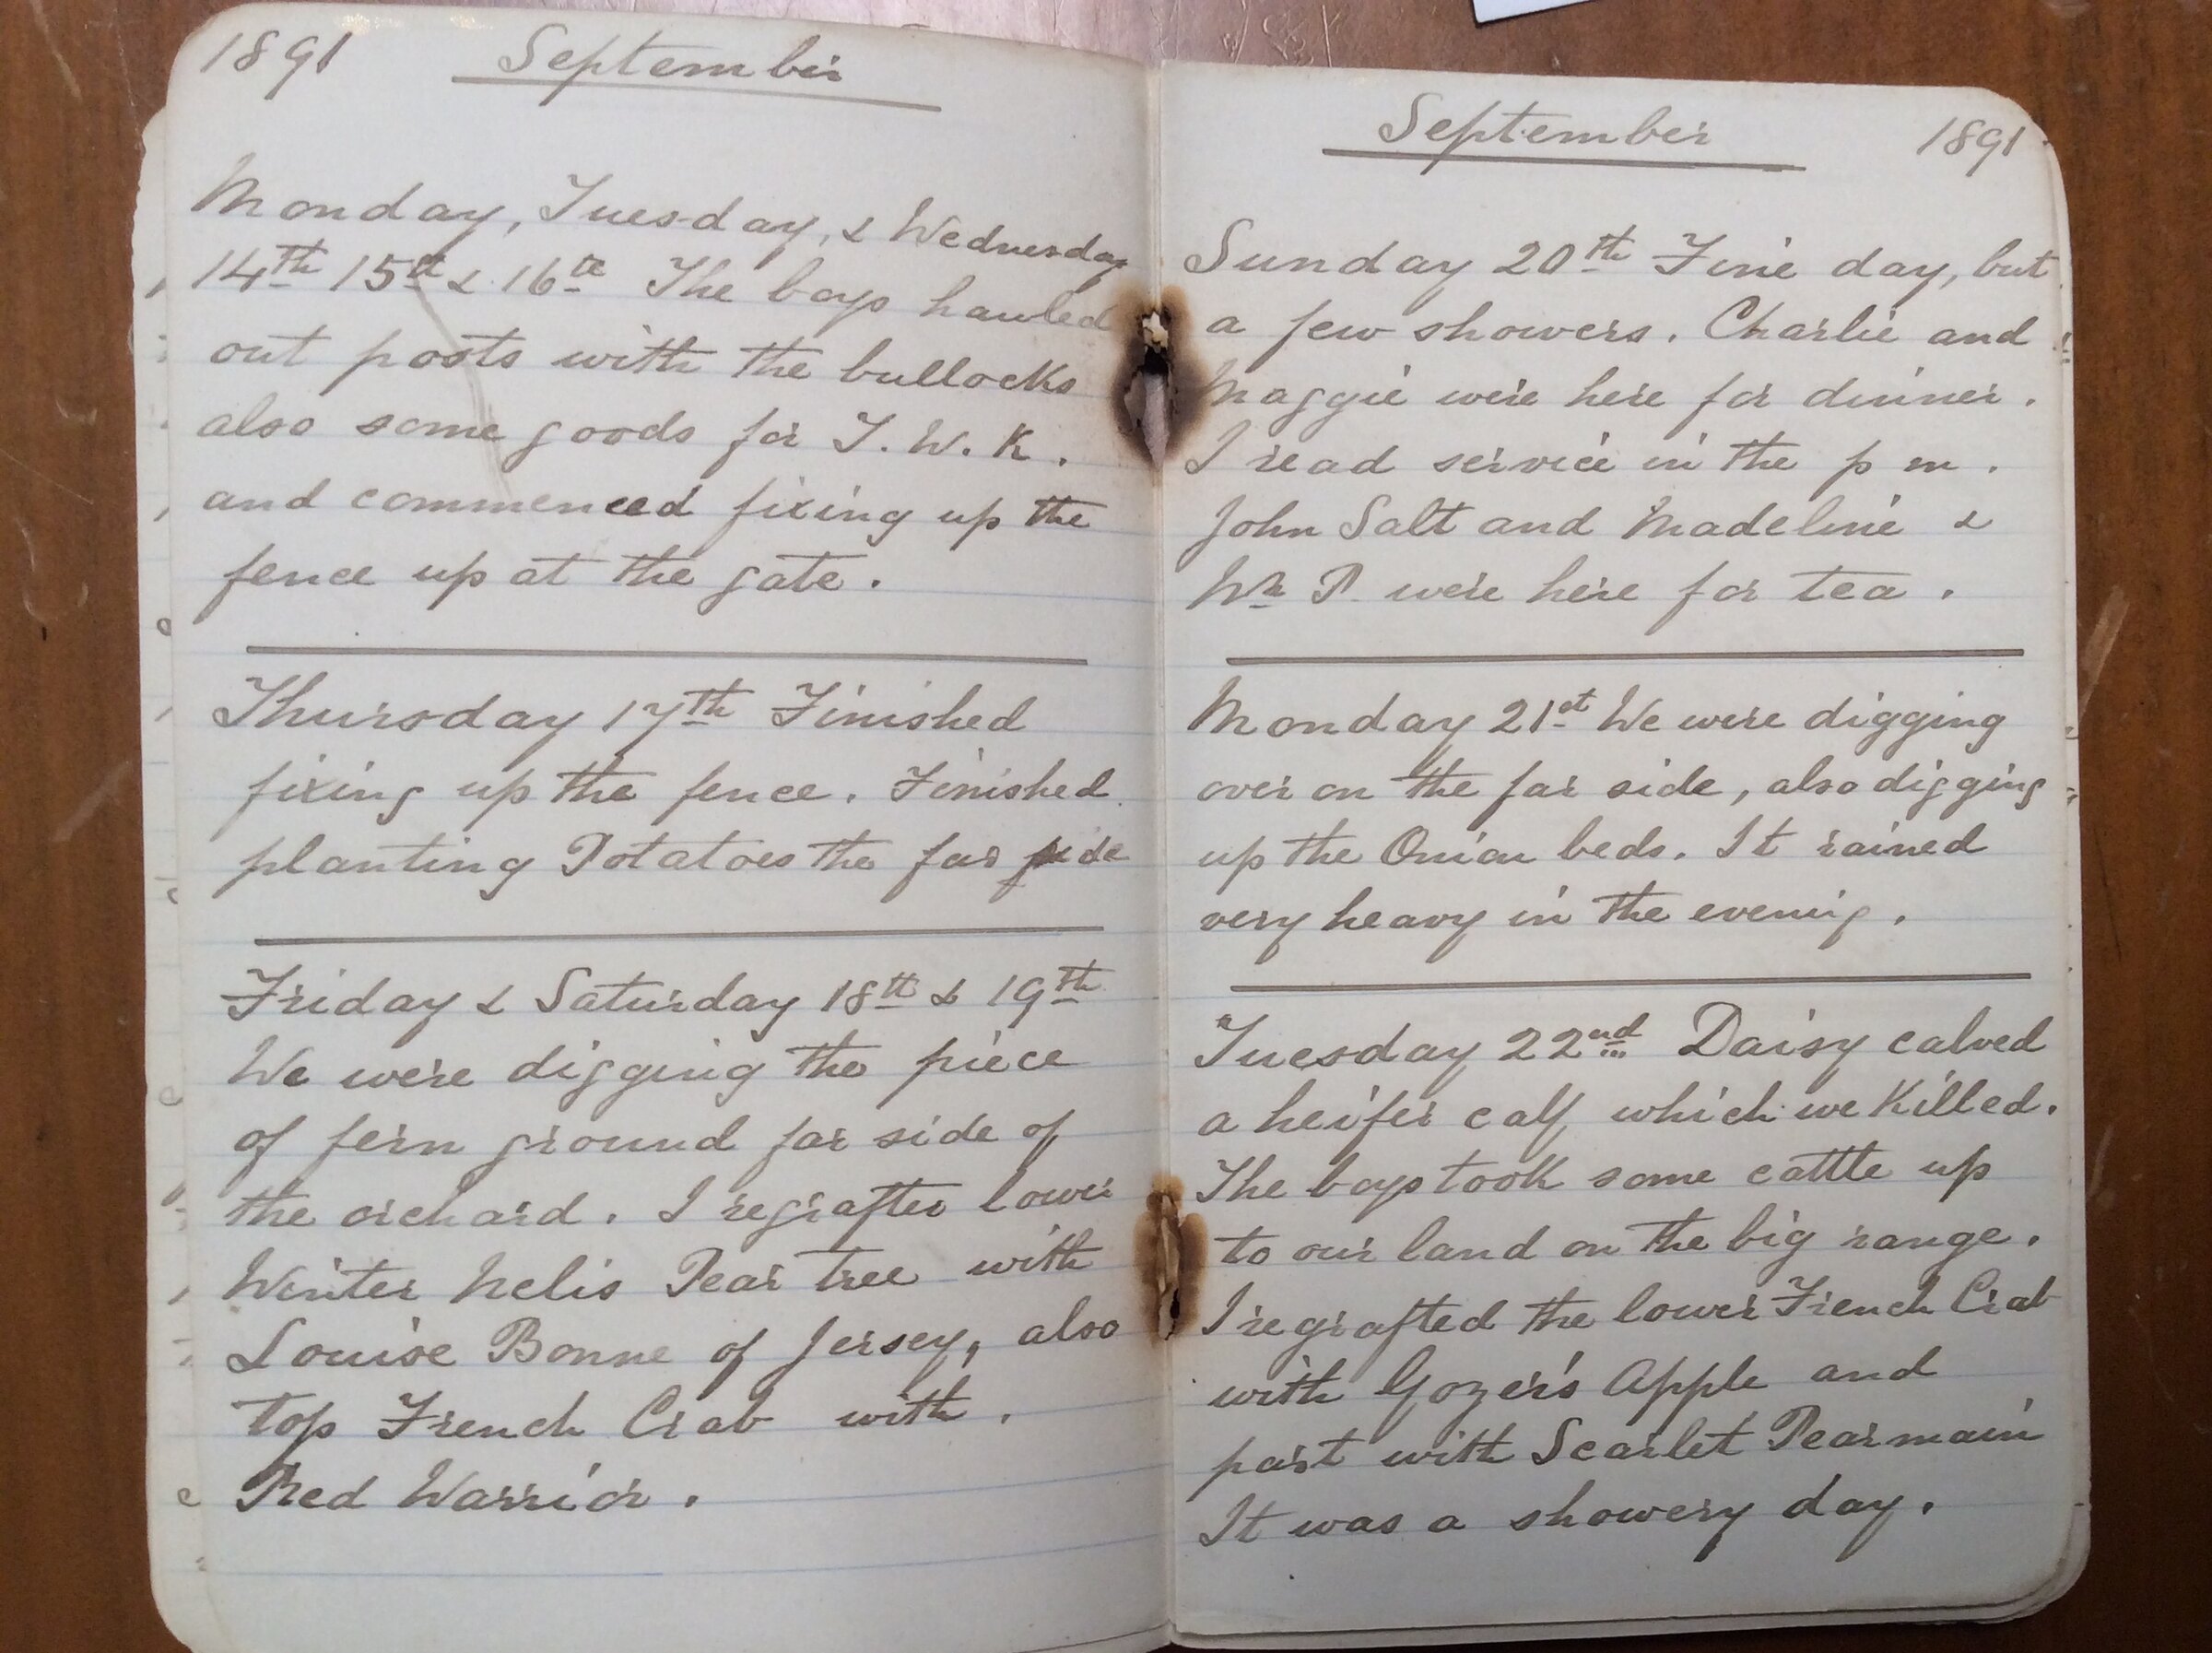 1891 September
Monday, Tuesday, & Wednesday
14th 15th & 16th The boys hauled
out posts with the bullocks
also some goods for T. W. K.
and commenced fixing up the
fence up at the gate.
Thursday 17th Finished
fixing up the fence. Finished
planting Potatoes the far side
Friday & Saturday 18th & 19th
We were digging the piece
of fern ground far side of
the orchard. I regrafted lower
Winter Nelis Pear tree with
Louise Bonne of Jersey, also
top French Crab with.
Red Warrior.
September 1891
Sunday 20th Fine day, but
a few showers. Charlie and
Maggie were here for dinner.
I read service in the p m.
John Salt and Madeline &
Wm P. were here for tea.
Monday 21st We were digging
over on the far side, also digging
up the Onion beds. It rained
very heavy in the evening.
Tuesday 22nd Daisy calved
a heifer calf which we Killed.
The boys took some cattle up
to our land on the big range.
I regrafted the lower French Crab
with Gozer's Apple and
part with Scarlet Pearmain
It was a showery day.